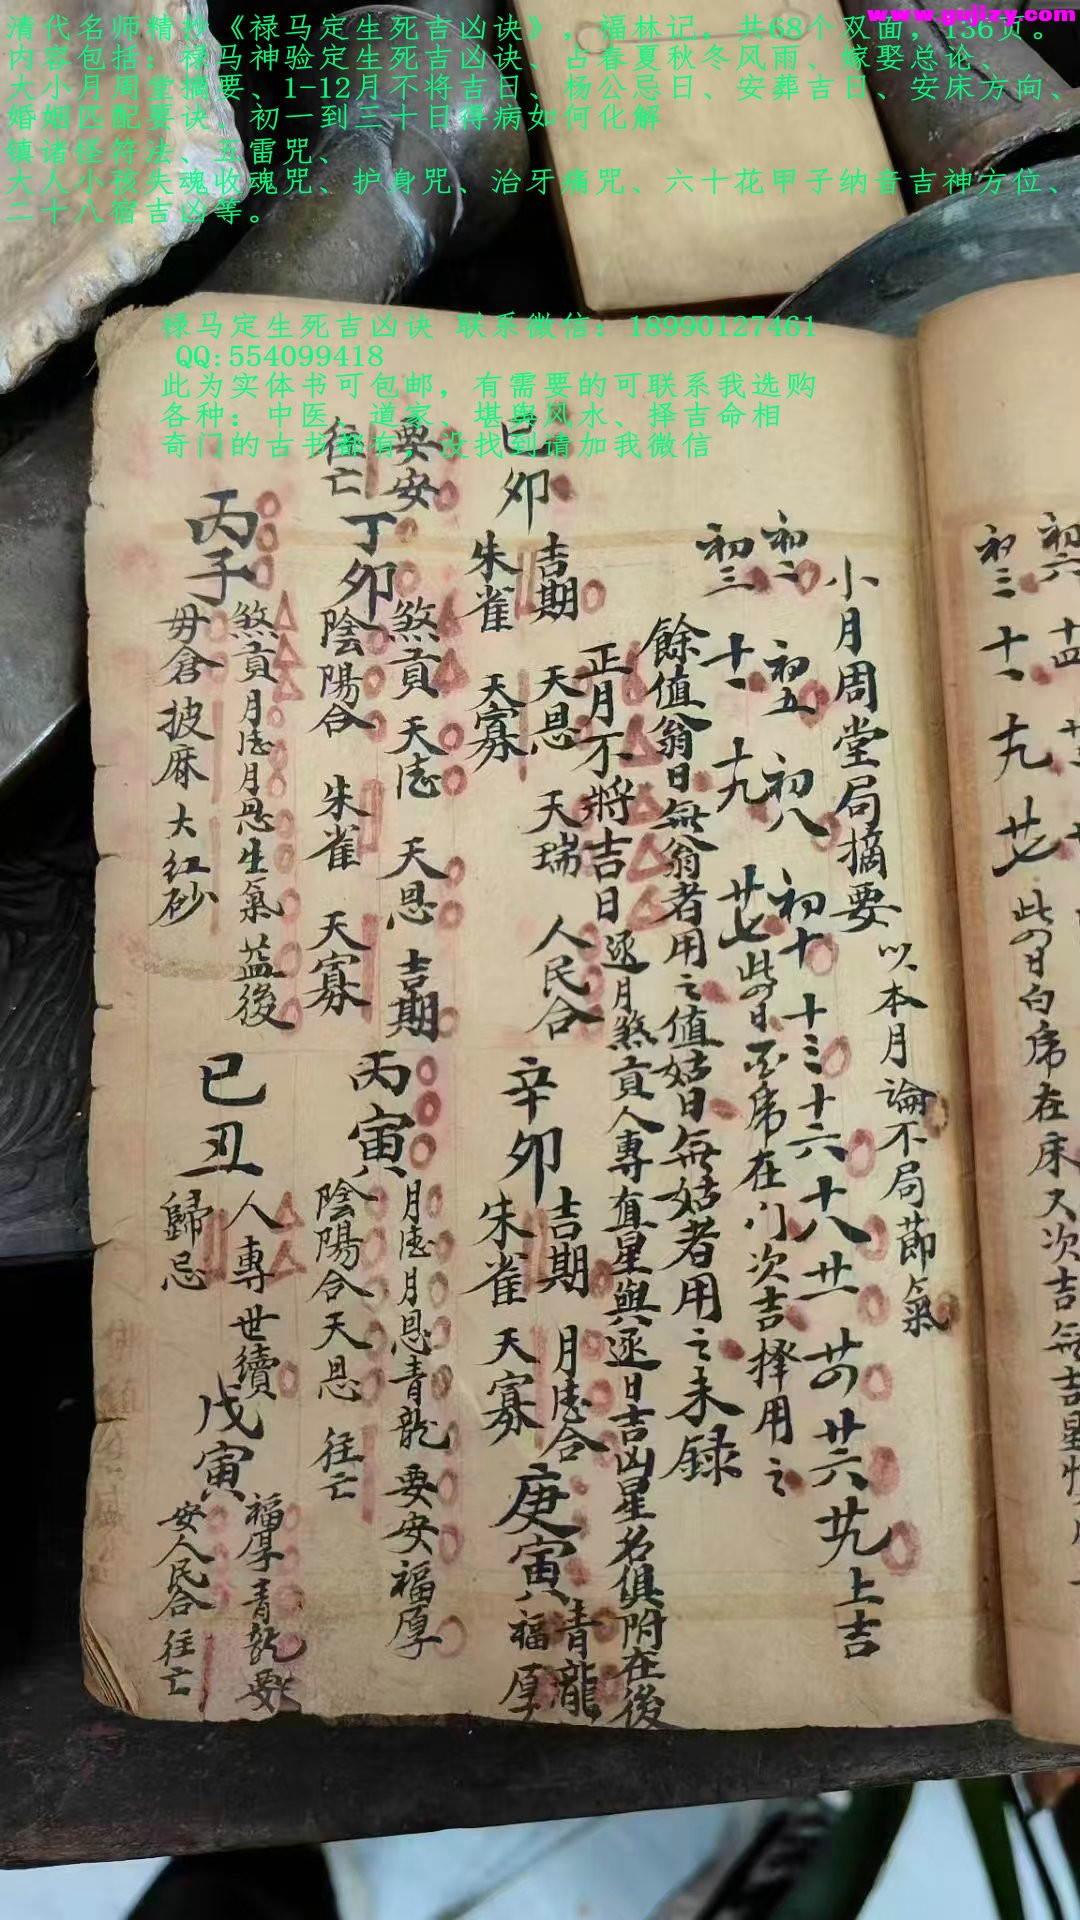 www.gujizy.com
清代名师精抄《禄马定生死吉凶诀》，福林记，共68个双面，136页。
内容包括：禄马神验定生死吉凶诀、占春夏秋冬风雨、嫁娶总论、
大小月周堂摘要、1-12月不将吉日、杨公忌日、安葬吉日、安床方向、
婚姻匹配要诀、初一到三十日得病如何化解
镇诸怪符法、五雷咒、
大人小孩失魂收魂咒、护身咒、治牙痛咒、六十花甲子纳音吉神方位、
二十八宿吉凶等。
禄马定生死吉凶诀 联系微信：18990127461
QQ:554099418
此为实体书可包邮，有需要的可联系我选购
各种：中医、道家、堪舆风水、择吉命相
奇门的古书都有，没找到请加我微信
初六 十四
初三 十一 十九 廿七 此四日白虎在床又次吉無吉星
小月周堂局摘要 以本月論不局節氣
初二 初五 初八 初十 十三 十六 十八 廿一 廿四 廿六 廿九 上吉
初三 十一 十九 廿七 此四日白虎在门次吉擇用之
餘值翁日無翁者用之值姑日無姑者用之未録
正月不將吉日 逐月煞貢人專直星與逐日吉凶星名俱附在後
己卯 吉期 天恩 天瑞 人民合
朱雀 天寡
辛卯 吉期 月德合
朱雀 天寡
庚寅 青龍
福厚
要安
往亡
丁卯 煞貢 天德 天恩 吉期
陰陽合 朱雀 天寡
丙寅 月德月恩青龍 要安 福厚
陰陽合天恩 往亡
丙子 煞貢月德月恩生氣益後
毋倉披麻大红砂
已丑 人專世續
歸忌
戊寅 福厚青龍要
安人民合 往亡